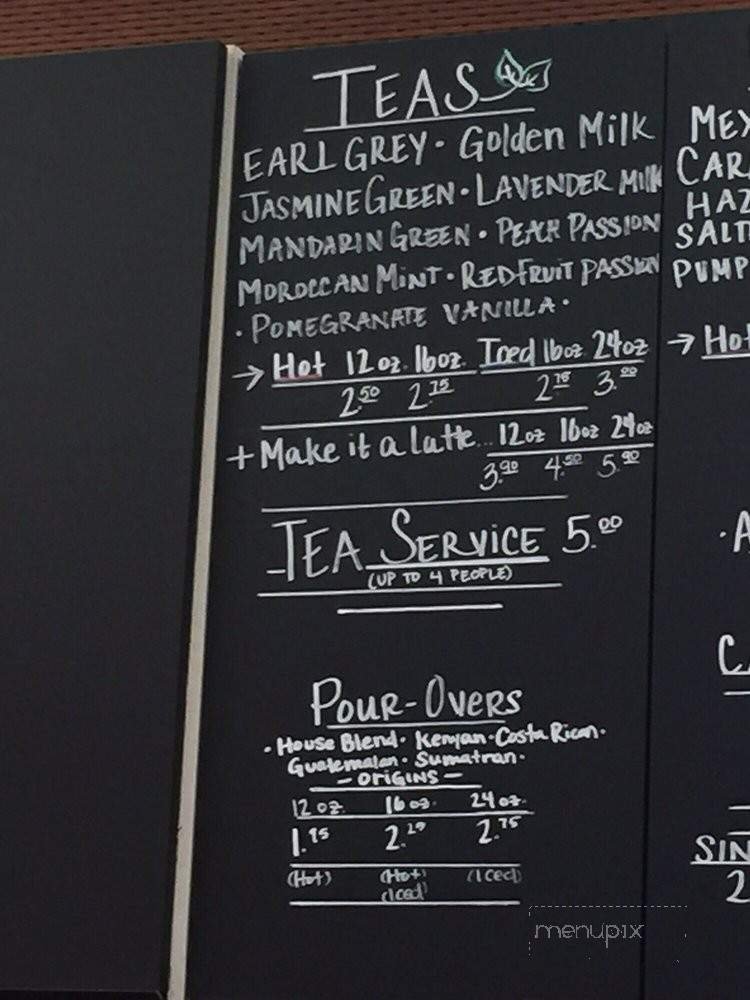 TEAS
EARL GREY · Golden Milk
JASMINE GREEN · LAVENDER MILK
MANDARIN GREEN · PEACH PASSION
MOROCCAN MINT · RED FRUIT PASSION
· POMEGRANATE VANILLA ·
→ Hot 12oz. 16oz. Iced 16oz 24oz
2.50 2.75 2.75 3.00
+ Make it a latte... 12oz 16oz 24oz
3.90 4.50 5.90
TEA SERVICE 5.00
(UP TO 4 PEOPLE)
POUR-OVERS
· House Blend · Kenyan · Costa Rican ·
Guatemalan · Sumatran ·
— ORIGINS —
12 oz. 16 oz. 24 oz.
1.95 2.25 2.75
(Hot) (Hot) (Iced)
(Iced)
MEX
CAR
HAZ
SALT
PUMP
→ Hot
· A
CA
SIN
2
menupix